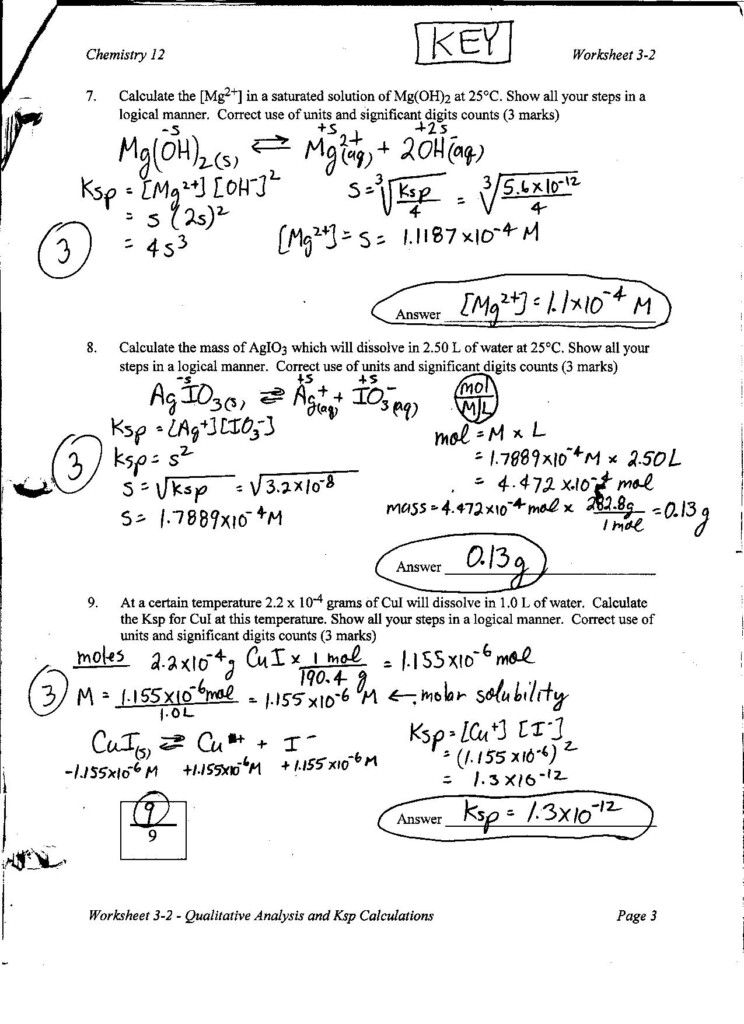 KEY
Chemistry 12
Worksheet 3-2
7. Calculate the [Mg2+] in a saturated solution of Mg(OH)2 at 25°C. Show all your steps in a
logical manner. Correct use of units and significant digits counts (3 marks)
-s +s +2s
Mg(OH)2(s) ⇌ Mg2+(aq) + 2OH-(aq)
Ksp = [Mg2+] [OH-]2
= s (2s)2
= 4s3
3
s = ∛(Ksp/4) = ∛(5.6x10-12/4)
[Mg2+] = s = 1.1187 x10-4 M
Answer [Mg2+] = 1.1x10-4 M
8. Calculate the mass of AgIO3 which will dissolve in 2.50 L of water at 25°C. Show all your
steps in a logical manner. Correct use of units and significant digits counts (3 marks)
-s +s +s
AgIO3(s) ⇌ Ag+(aq) + IO3-(aq)
mol
M|L
Ksp = [Ag+][IO3-]
Ksp = s2
3
s = √Ksp = √3.2x10-8
s = 1.7889x10-4 M
mol = M x L
= 1.7889x10-4 M x 2.50L
= 4.472 x10-4 mol
mass = 4.472x10-4 mol x 282.8g/1 mol = 0.13 g
Answer 0.13g
9. At a certain temperature 2.2 x 10-4 grams of CuI will dissolve in 1.0 L of water. Calculate
the Ksp for CuI at this temperature. Show all your steps in a logical manner. Correct use of
units and significant digits counts (3 marks)
moles 2.2x10-4 g CuI x 1 mol/190.4 g = 1.155x10-6 mol
3
M = 1.155x10-6 mol/1.0L = 1.155x10-6 M ← molar solubility
CuI(s) ⇌ Cu+ + I-
-1.155x10-6 M +1.155x10-6 M +1.155x10-6 M
Ksp = [Cu+] [I-]
= (1.155 x10-6)2
= 1.3 x10-12
Answer Ksp = 1.3x10-12
9
9
Worksheet 3-2 - Qualitative Analysis and Ksp Calculations
Page 3